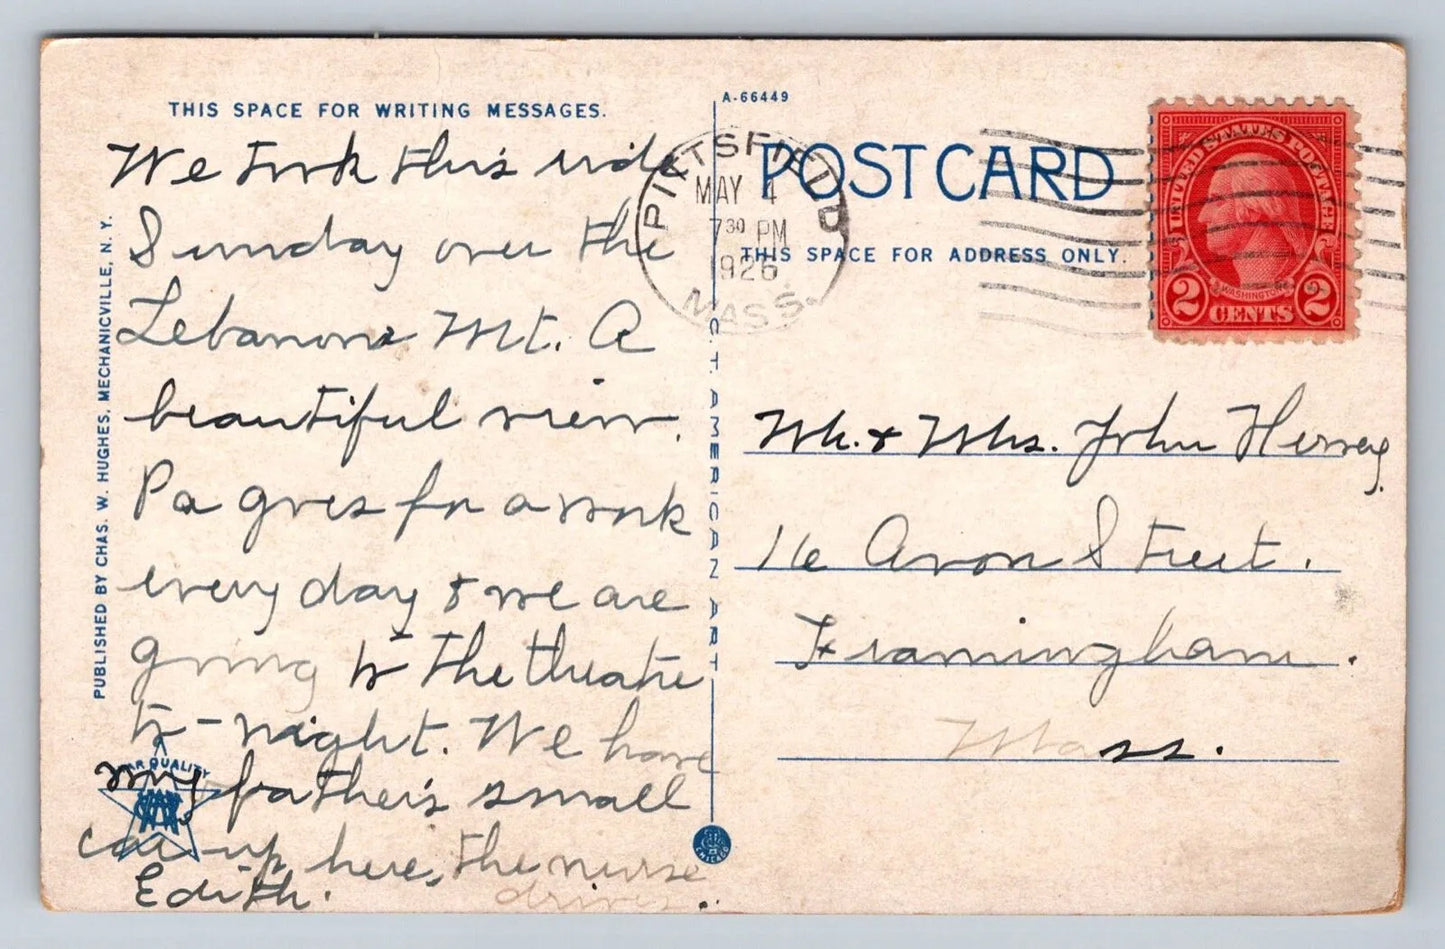 THIS SPACE FOR WRITING MESSAGES.
We took this ride
Sunday over the
Lebanon Mt. A
beautiful view.
Pa goes for a walk
every day & we are
going to the theatre
to-night. We have
my father's small
car up here, the nurse
drives.
Edith.
PUBLISHED BY CHAS. W. HUGHES, MECHANICVILLE, N. Y.
STAR QUALITY
A-66449
C. T. AMERICAN ART
CHICAGO
PITTSFIELD
MAY 4
7 30 PM
1926
MASS.
POST CARD
THIS SPACE FOR ADDRESS ONLY.
UNITED STATES POSTAGE
WASHINGTON
2 CENTS 2
Mr. & Mrs. John Hersey
16 Avon Street.
Framingham.
Mass.